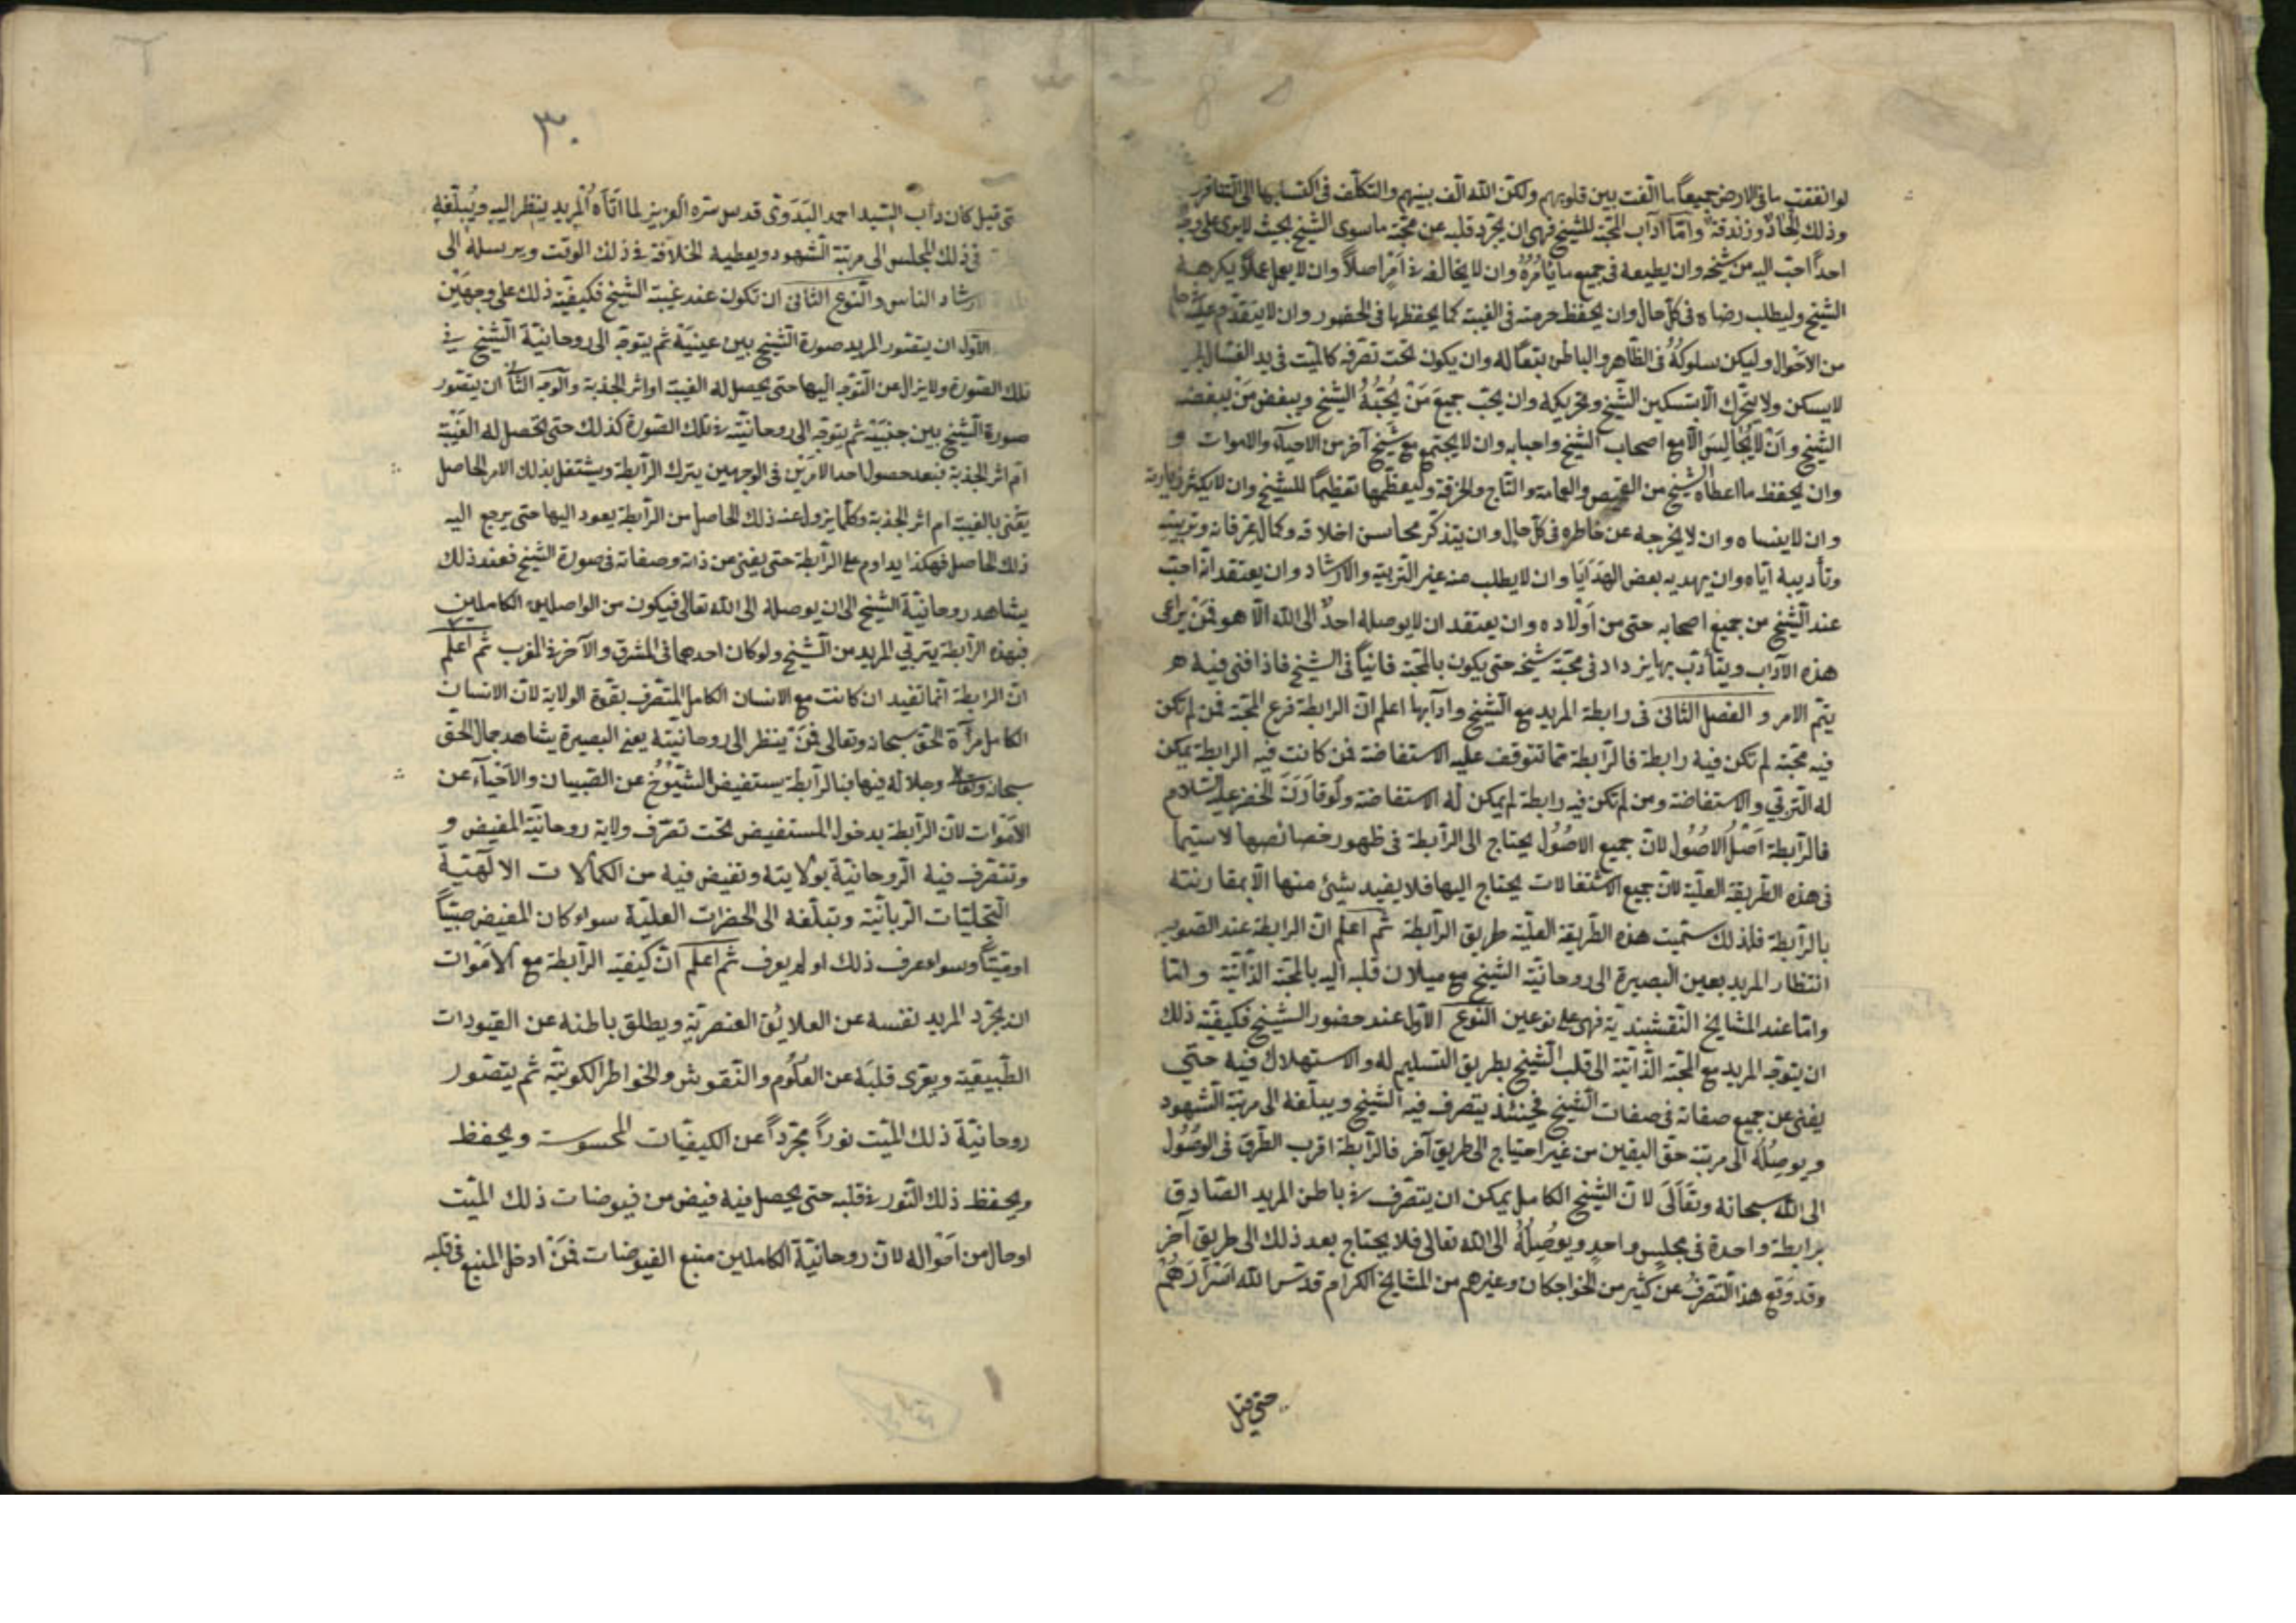 لو انفقت ما فى الارض جميعاً ما الّفت بين قلوبهم ولكنّ الله الّف بينهم والتكلّف فى اكتسابها الى التنافر
وذلك الحادٌ وزندقة وامّا آداب المحبّة للشيخ فهى ان يجرّد قلبه عن محبّة ما سوى الشيخ بحيث لا يرى على وجه
احداً احبّ اليه من شيخه وان يطيعه فى جميع ما يأمُرُهُ وان لا يخالفه فى امرٍ اصلاً وان لا يعمل عملاً يكرهه
الشيخ وليطلب رضاه فى كلّ حال وان يحفظ حرمته فى الغيبة كما يحفظها فى الحضور وان لا يتقدّم عليه
من الاحْوال وليكن سلوكهُ فى الظّاهر والباطن تبعاً له وان يكون تحت تصرّفه كالميّت فى يد الغسّال
لا يسكن ولا يتحّرك الّا بتسكين الشّيخ وتحريكه وان يحبّ جميعَ مَنْ يُحِبُّهُ الشيخ ويبغض مَنْ يبغضه
الشيخ وانْ لا يُجالِسَ الّا مع اصحاب الشيخ واحبابه وان لا يجتمع مع شيخ آخر من الاحياء والاموات و
وان يحفظ ما اعطاه الشيخ من القميص والعمامة والتّاج والخرقة وليعظّمها تعظيماً للشيخ وان لا يكثر زيارته
وان لا ينساه وان لا يخرجه عن خاطره فى كلّ حال وان يتذكّر محاسن اخلاقه وكمال عرفانه وتربيته
وتأديبه ايّاه وان يهديه بعض الهَدَايَا وان لا يطلب منه غير التّربية والارشاد وان يعتقد انّه احبّ
عند الشّيخ من جميع اصحابه حتى من اَوْلاده وان يعتقد ان لا يوصله احدٌ الى الله الّا هو فمَنْ يراعى
هذه الآداب ويتأدّب بها يزداد فى محبّة شيخه حتى يكون بالمحبّة فانياً فى الشيخ فاذا فنى فيه
يتمّ الامر و الفصل الثانى فى رابطة المريد مع الشّيخ وادآبها اعلم انّ الرابطة فرع المحبّة فمن لم تكن
فيه محبّة لم تكن فيه رابطة فالرّابطة ممّا تتوقف عليه الاستفاضة فمن كانت فيه الرابطة يمكن
له التّرقّي والاستفاضة ومن لم تكن فيه رابطة لم يمكن له الاستفاضة ولَو قارَنَ الخضر عليه السّلام
فالرّابطة اَصْلُ الاصُوُل لانّ جميع الاصُوُل يحتاج الى الرّابطة فى ظهور خصائصها لا سيّما
فى هذه الطّريقة العليّة لانّ جميع الاشتغالات يحتاج اليها فلا يفيد شيئ منها الّا بمقارنته
بالرّابطة فلذلك سمّيت هذه الطّريقة العليّة طريق الرّابطة ثم اعلم انّ الرابطة عند الصّوفيّه
انتظار المريد بعين البصيرة الى روحانيّة الشيخ مع ميلان قلبه اليه بالمحبّة الذّاتيّة وامّا
وامّا عند المشايخ النّقشبنديّة فهى على نوعين النّوع الاوّل عند حضور الشّيخ فكيفيّة ذلك
ان يتوجّه المريد مع المحبّة الذّاتيّة الى قلب الشّيخ بطريق التسليم له والاستهلاك فيه حتّي
يفنى عن جميع صفاته فى صفات الشّيخ فحينئذ يتصرف فيه الشّيخ ويبلّغه الى مرتبة الشّهود
ويوصِلُهُ الى مرتبة حقّ اليقين من غير احتياج الى طريق آخر فالرّابطة اقرب الطّرق فى الوصُوُل
الى الله سبحانه وتَعَالَى لانّ الشّيخ الكامل يمكن ان يتصّرف فى باطن المريد الصّادق
برابطة واحدة فى مجلسٍ واحدٍ ويوُصِلُهُ الى الله تعالى فلا يحتاج بعد ذلك الى طريق آخر
وقد وَقع هذا التّصّرفُ عن كثير من الخواجكان وغيرهم من المشايخ الكرام قدّس الله اَسْرَارَهُمْ
حتى قيل
٣٠
تى قيل كان دأب السّيد احمد البَدَوىّ قدس سّره العزيز لما اتَاه المريد ينظر اليه ويُبلّغه
فى ذلك المجلس الى مرتبة الشّهود ويعطيه الخلافة فى ذلك الوقت ويرسله الى
ارشاد الناس والنّوع الثّانى ان تكون عند غيبة الشّيخ فكيفيّة ذلك على وجهَيْن
الاّول ان يتصّور المريد صورة الشّيخ بين عينيَهْ ثم يتوجّه الى روحانيّة الشّيخ فى
تلك الصّورة ولا يزال عن التّوجّه اليها حتى يحصل له الغيبة او اثر الجذبة والوجه الثّانى ان يتصّور
صورة الشّيخ بين جنبَيْه ثم يتوجّه الى روحانيّته فى تلك الصّورة كذلك حتى تحصل له الغَيْبة
ام اثر الجذبة فبعد حصول احد الامرَيْن فى الوجهين يترك الرّابطة ويشتغل بذلك الامر الحاصل
يعْنى بالغيبة ام اثر الجذبة وكلّما يزول عنه ذلك الحاصل من الرّابطة يعود اليها حتى يرجع اليه
ذلك الحاصل فهكذا يداوم على الرّابطة حتى يفنى عن ذاته وصفاته فى صورة الشّيخ فعند ذلك
يشاهد روحانيّة الشّيخ الى ان يوصله الى الله تعالى فيكون من الواصلين الكاملين
فبهذه الرّابطة يترقّي المريد من الشّيخ ولو كان احدهما فى المشرق والآخر فى المغرب ثم اعلم
انّ الرابطة انّما تفيد ان كانت مع الانسان الكامل المتصّرف بقوّة الولاية لانّ الانسان
الكامل مرآة الحقّ سبحانه وتعالى فمَنْ ينظر الى روحانيّته بعين البصيرة يشاهد جمال الحقّ
سبحانه وتعالى وجلاله فيها فبالرّابطة يستفيض الشّيُوْخُ عن الصّبيان والاَحْيآء عن
الاَمْوات لانّ الرّابطة بدخول المستفيض تحت تصّرف ولاية روحانيّة المفيض و
وتتصّرف فيه الرّوحانيّة بولايته وتفيض فيه من الكمالات الالٰهيّة
التّجليّات الرّبانيّة وتبلّغه الى الحضرات العليّة سواء كان المفيض صبيّاً
او ميّتاً وسواء عرف ذلك او لم يعرف ثم اعلم انّ كيفيّة الرّابطة مع الاَمْوات
ان يجرّد المريد نفسه عن العلائق العنصريّة ويطلق باطنه عن القيودات
الطّبيعيّة ويعرّى قلبَه عن العلُوُم والنّقوش والخواطر الكونيّة ثم يتصّور
روحانيّة ذلك الميّت نوراً مجرّداً عن الكيفيّات المحسوسة ويحفظ
ويحفظ ذلك النّور فى قلبه حتى يحصل فيه فيض من فيوضات ذلك الميّت
او حال من اَحْواله لانّ روحانيّة الكاملين منبع الفيوضات فمَنْ ادخل المنبع فى قلبه